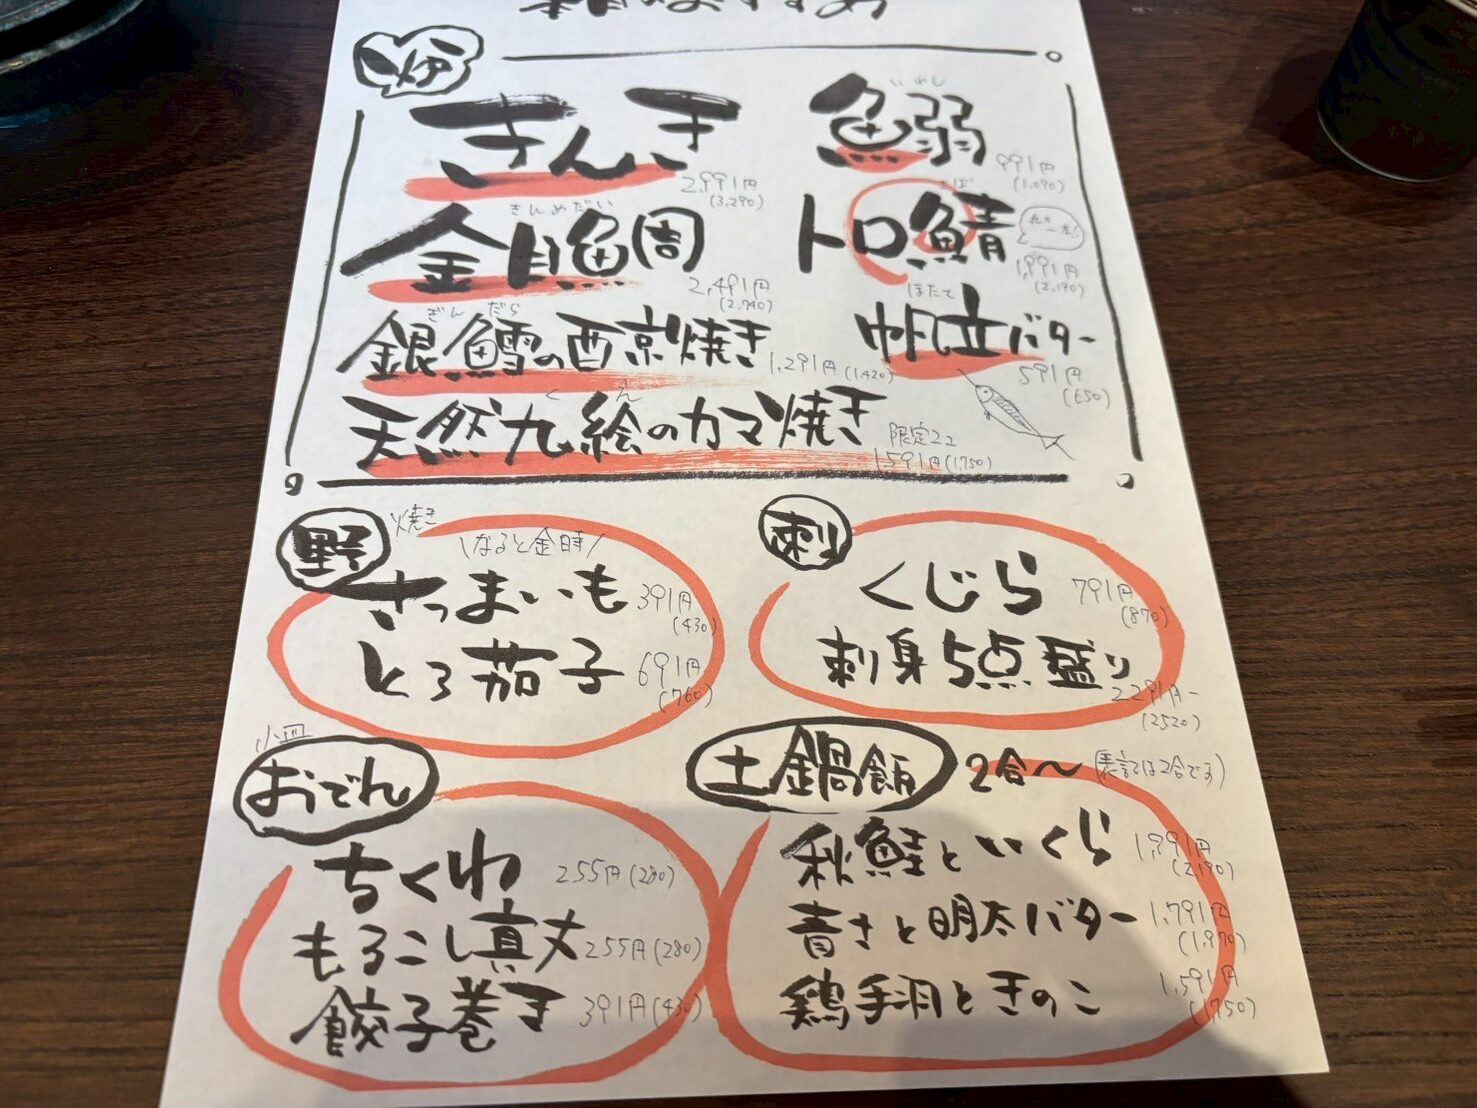 炉
きんき 2,991円
(3,290)
いわし
鰯 991円
(1,090)
きんめだい
金目鯛 2,491円
(2,740)
さば
トロ鯖 1,991円
(2,190)
ぎんだら
銀鱈の西京焼き 1,291円(1,420)
ほたて
帆立バター 591円
(650)
くえ
天然九絵のカマ焼き 限定22
1,591円(1,750)
野 焼き
\なると金時/
さつまいも 391円
(430)
とろ茄子 691円
(760)
刺
くじら 791円
(870)
刺身5点盛り 2291円~
(2520)
小皿
おでん
ちくわ 255円(280)
もろこし真丈 255円(280)
餃子巻き 391円(430)
土鍋飯 2合〜 (表記は2合です)
秋鮭といくら 1,991円
(2,190)
青さと明太バター 1,791円
(1,970)
鶏手羽ときのこ 1,591円
(1,750)